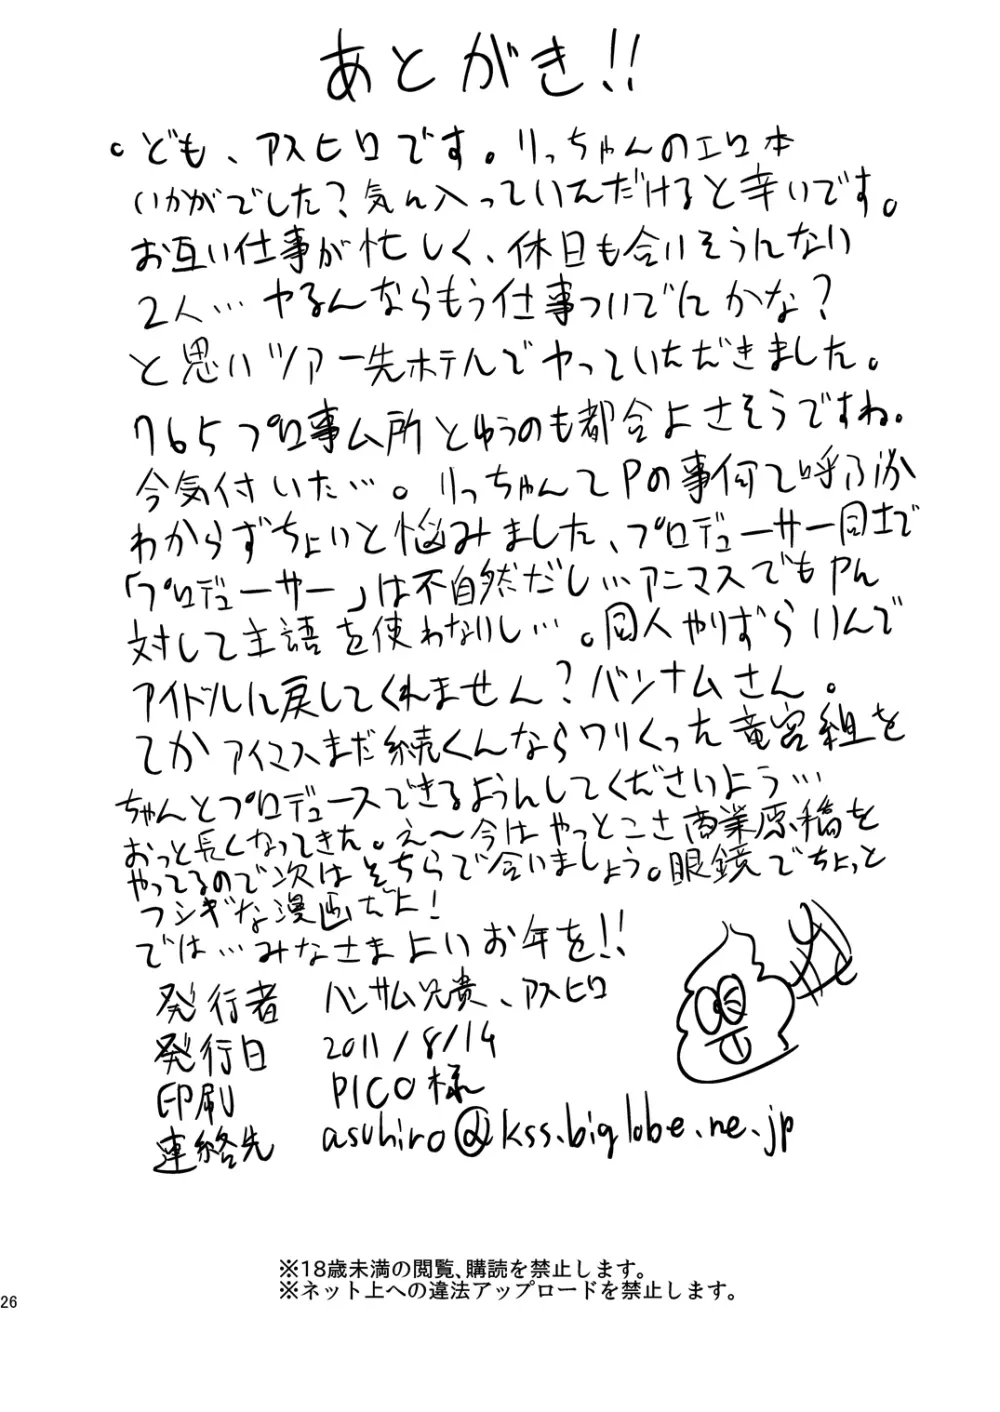 あとがき!!
。ども、アスヒロです。りっちゃんのエロ本
いかがでした？気に入っていただけると幸いです。
お互い仕事が忙しく、休日も合いそうにない
2人…ヤるんならもう仕事ついでにかな？
と思いツアー先ホテルでヤっていただきました。
765プロ事ム所とゆうのも都合よさそうですね。
今気付いた…。りっちゃんてPの事何て呼ぶか
わからずちょいと悩みました、プロデューサー同士で
「プロデューサー」は不自然だし…アニマスでもPに
対して主語を使わないし…。同人やりずらいんで
アイドルに戻してくれません？バンナムさん。
てかアイマスまだ続くんならワリくった竜宮組を
ちゃんとプロデュースできるようにしてくださいよう…
おっと長くなってきた。え～今はやっとこさ商業原稿を
やってるので次はそちらで会いましょう。眼鏡でちょっと
フシギな漫画だよ！
では…みなさまよいお年を!!
発行者 ハンサム兄貴、アスヒロ
発行日 2011/8/14
印刷 PICO様
連絡先 asuhiro@kss.biglobe.ne.jp
※18歳未満の閲覧、購読を禁止します。
※ネット上への違法アップロードを禁止します。
26